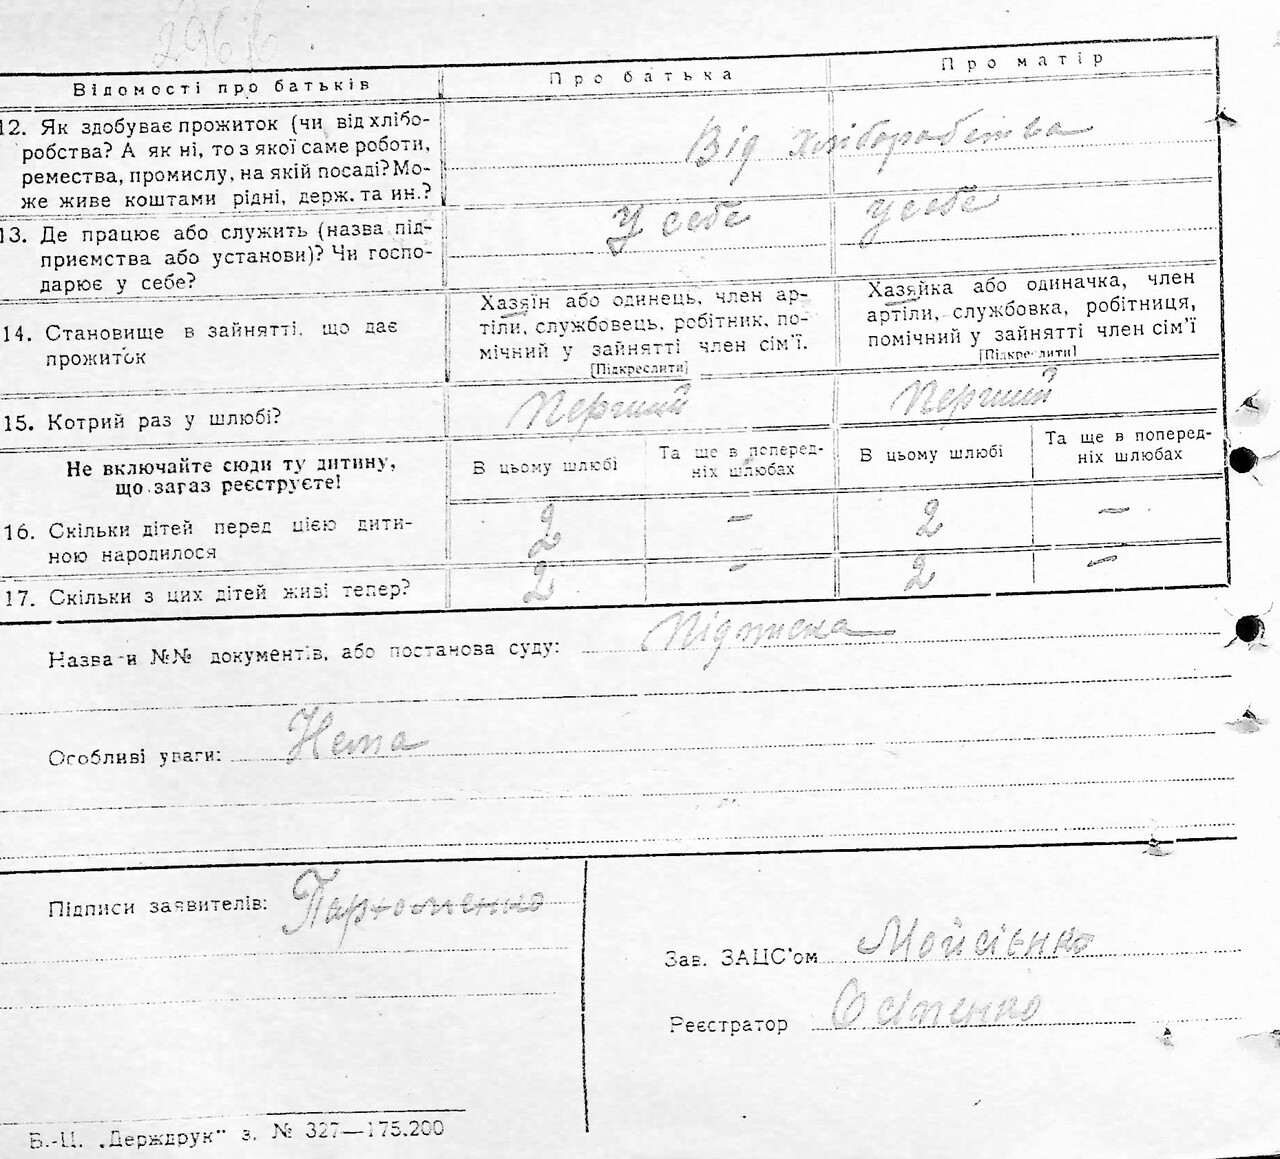 Відомості про батьків
Про батька
Про матір
12. Як здобуває прожиток (чи від хлібо-
робства? А як ні, то з якої саме роботи,
ремества, промислу, на якій посаді? Мо-
же живе коштами рідні, держ. та ин.?
Від хліборобства
13. Де працює або служить (назва під-
приємства або установи)? Чи госпо-
дарює у себе?
У себе
у себе
14. Становище в зайнятті, що дає
прожиток
Хазяїн або одинець, член ар-
тіли, службовець, робітник, по-
мічний у зайнятті член сім'ї.
[Підкреслити]
Хазяйка або одиначка, член
артіли, службовка, робітниця,
помічний у зайнятті член сім'ї
[Підкреслити]
15. Котрий раз у шлюбі?
Перший
Перший
Не включайте сюди ту дитину,
що зараз реєструєте!
В цьому шлюбі
Та ще в поперед-
ніх шлюбах
В цьому шлюбі
Та ще в поперед-
ніх шлюбах
16. Скільки дітей перед цією дити-
ною народилося
2
–
2
–
17. Скільки з цих дітей живі тепер?
2
–
2
–
Назва и №№ документів, або постанова суду: Підписка
Особливі уваги: Нема
Підписи заявителів: Пархоменко
Зав. ЗАЦС'ом Мойсієнко
Реєстратор Осіпенко
Б.-Ц. „Держдрук" з. № 327—175.200